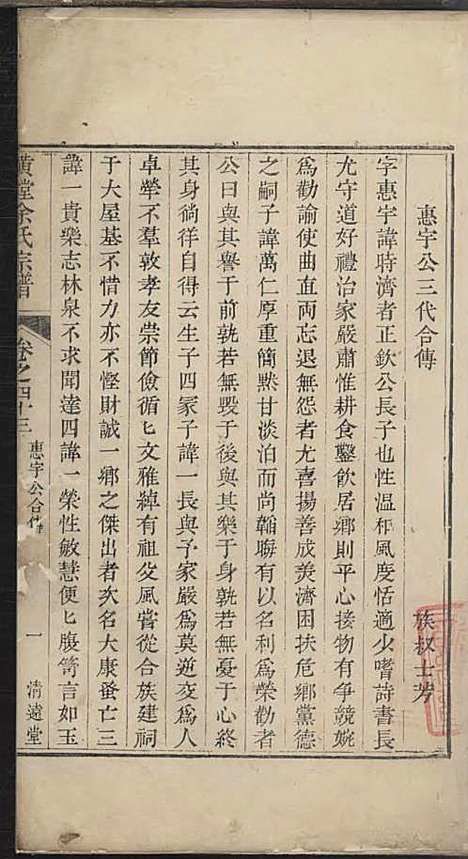 惠宇公三代合傳
族叔士芳
字惠宇諱時濟者正欽公長子也性溫和風度恬適少嗜詩書長
尤守道好禮治家嚴肅惟耕食鑿飲居鄉則平心接物有爭競婉
爲勸諭使曲直両忘退無怨者尤喜揚善成美濟困扶危鄉黨德
之嗣子諱萬仁厚重簡黙甘淡泊而尚韜晦有以名利爲榮勸者
公曰與其譽于前孰若無毀于後與其樂于身孰若無憂于心終
其身徜徉自得云生子四冡子諱一長與予家嚴爲莫逆交爲人
卓犖不羣敦孝友崇節儉循匕文雅綽有祖父風嘗從合族建祠
于大屋基不惜力亦不慳財誠一鄉之傑出者次名大康蚤亡三
諱一貴樂志林泉不求聞達四諱一榮性敏慧便匕腹笥言如玉
黃堂余氏宗譜
卷之四十三
惠宇公合傳
一
清遠堂